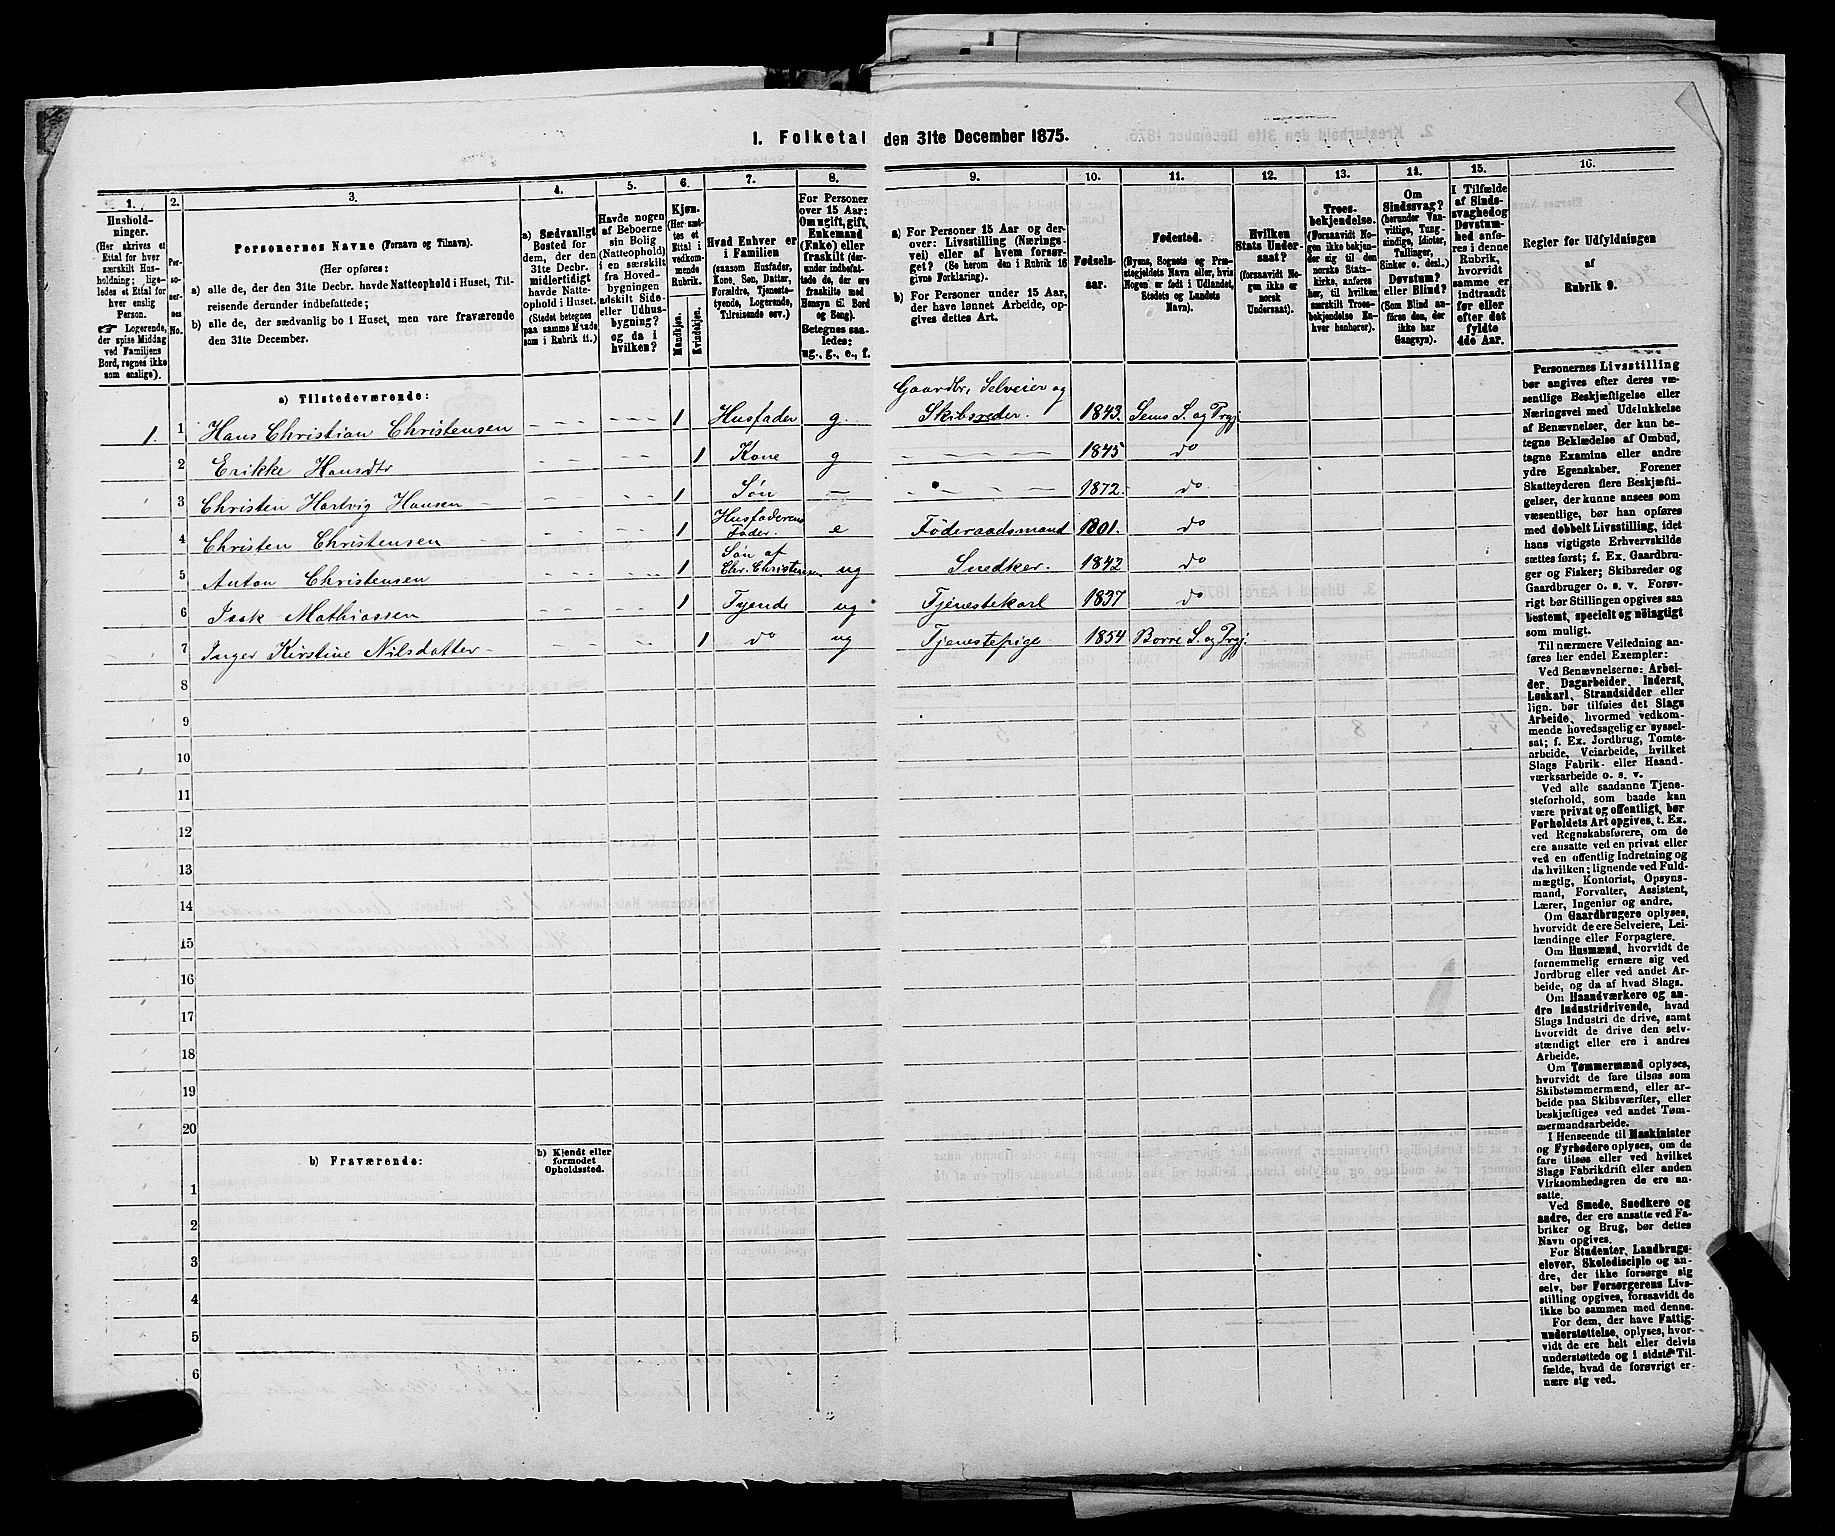 1. Folketal den 31te December 1875.
1.
Hushold-
ninger.
(Her skrives et
Ettal for hver
særskilt Hus-
holdning; lige-
ledes et Ettal for
hver enslig
Person.
☞ Logerende,
der spise Middag
ved Familiens
Bord, regnes ikke
som enslige).
2.
Per-
so-
ner-
nes
No.
3.
Personernes Navne (Fornavn og Tilnavn).
(Her opføres:
a) alle de, der den 31te Decbr. havde Natteophold i Huset, Til-
reisende derunder indbefattede;
b) alle de, der sædvanlig bo i Huset, men vare fraværende
den 31te December.
4.
a) Sædvanligt
Bosted for
dem, der den
31te Decbr.
midlertidigt
havde Natte-
ophold i Huset.
(Stedet betegnes
paa samme Maade
som i Rubrik 11.)
5.
Havde nogen
af Beboerne
sin Bolig
(Natteophold)
i en særskilt
fra Hoved-
bygningen
adskilt Side-
eller Udhus-
bygning?
og da i
hvilken?
6.
Kjøn.
(Her sæt-
tes et
Ettal i
vedkom-
mende
Rubrik.
Mandkjøn.
Kvindekjøn.
7.
Hvad Enhver er
i Familien
(saasom Husfader,
Kone, Søn, Datter,
Forældre, Tjeneste-
tyende, Logerende,
Tilreisende osv.)
8.
For Personer
over 15 Aar:
Om ugift, gift,
Enkemand
(Enke) eller
fraskilt (der-
under indbefat-
tede de, der ere
fraskilte med
Hensyn til Bord
og Seng).
Betegnes saa-
ledes:
ug., g., e., f.
9.
a) For Personer over 15 Aar og der-
over: Livsstilling (Nærings-
vei) eller af hvem forsør-
get? (Se herom den i Rubrik 16
givne Forklaring).
b) For Personer under 15 Aar,
der have lønnet Arbeide, op-
gives dettes Art.
10.
Fødsels-
aar.
11.
Fødested.
(Byens, Sognets og Præ-
stegjeldets Navn eller, hvis
Nogen er født i Udlandet,
Stedets og Landets
Navn).
12.
Hvilken
Stats Under-
saat?
(forsaavidt No-
gen ikke er
norsk
Undersaat).
13.
Troes-
bekjendelse.
(Forsaavidt No-
gen ikke bekjen-
der sig til den
norske Stats-
kirke, anføres
her, til hvilken
særskilt Troes-
bekjendelse En-
hver henhører).
14.
Om
Sindssvag?
(herunder Van-
vittige, Tung-
sindige, Idioter,
Tullinger,
Sinker o. desl.)
Døvstum?
eller Blind?
(Som Blind an-
føres den, der
ikke har
Gangsyn).
15.
I Tilfælde
af Sinds-
svaghed og
Døvstum-
hed anfø-
res i denne
Rubrik,
hvorvidt
samme er
indtraadt
før eller
efter det
fyldte
4de Aar.
16.
Regler for Udfyldningen
af
Rubrik 9.
a) Tilstedeværende:
Gaardbr, Selveier og
1. 1 Hans Christian Christensen 1 Husfader g. Skibsreder. 1843. Sems S. og Prgj.
2 Erikke Hansdtr 1 Kone g 1845 do
3 Christen Hartvig Hansen 1 Søn 1872. do.
4 Christen Christensen 1 Husfaderens Fader. e Føderaadsmand 1801. do
5 Anton Christensen 1 Søn af Chr. Christensen ug Snedker. 1842 do
6 Isak Mathiassen 1 Tyende ug Tjenestekarl 1837 do
7 Inger Kirstine Nilsdatter 1 do ug Tjenestepige 1854 Borre S. og Prgj.
8
9
10
11
12
13
14
15
16
17
18
19
20
b) Fraværende:
b) Kjendt eller
formodet
Opholdssted.
1
2
3
4
5
6
Personernes Livsstilling
bør angives efter deres væ-
sentlige Beskjæftigelse eller
Næringsvei med Udelukkelse
af Benævnelser, der kun be-
tegne Beklædelse af Ombud,
tagne Examina eller andre
ydre Egenskaber. Forener
Skatteyderen flere Beskjæfti-
gelser, der kunne ansees som
væsentlige, bør han opføres
med dobbelt Livsstilling, idet
hans vigtigste Erhvervskilde
sættes først; f. Ex. Gaardbru-
ger og Fisker; Skibsreder og
Gaardbruger o. s. v. Forøv-
rigt bør Stillingen opgives saa
bestemt, specielt og nøiagtigt
som muligt.
Til nærmere Veiledning an-
føres her endel Exempler:
Ved Benævnelserne: Arbei-
der, Dagarbeider, Inderst,
Løskarl, Strandsidder eller
lign. bør tilføies det Slags
Arbeide, hvormed vedkom-
mende hovedsagelig er syssel-
sat; f. Ex. Jordbrug, Tomte-
arbeide, Veiarbeide, hvilket
Slags Fabrik- eller Haand-
værksarbeide o. s. v.
Ved alle saadanne Tjene-
steforhold, som baade kan
være privat og offentligt, bør
Forholdets Art opgives, t. Ex.
ved Regnskabsførere, om de
ere ansatte ved en privat eller
ved en offentlig Indretning og
da hvilken; lignende ved Fuld-
mægtig, Kontorist, Opsyns-
mand, Forvalter, Assistent,
Lærer, Ingeniør og andre.
Om Gaardbrugere oplyses,
hvorvidt de ere Selveiere, Lei-
lændinge eller Forpagtere.
Om Husmænd, hvorvidt de
fornemmelig ernære sig ved
Jordbrug eller ved andet Ar-
beide, og da af hvad Slags.
Om Haandværkere og an-
dre Industridrivende, hvad
Slags Industri de drive, samt
hvorvidt de drive den selv-
stændigt eller ere i andres
Arbeide.
Om Tømmermænd oplyses,
hvorvidt de fare tilsøs som
Skibstømmermænd, eller ar-
beide paa Skibsværfter, eller
beskjæftiges ved andet Tøm-
mermandsarbeide.
I Henseende til Maskinister
og Fyrbødere oplyses, om de
fare tilsøs eller ved hvilket
Slags Fabrikdrift eller anden
Virksomhedsgren de ere an-
satte.
Ved Smede, Snedkere og
andre, der ere ansatte ved Fa-
briker og Brug, bør dettes
Navn opgives.
For Studenter, Landbrugs-
elever, Skoledisciple og an-
dre, der ikke forsørge sig
selv, bør Forsørgerens Livs-
stilling opgives, forsaavidt de
ikke bo sammen med denne.
For dem, der have Fattig-
understøttelse, oplyses, hvor-
vidt de ere helt eller delvis
understøttede og i sidste Til-
fælde, hvad de forøvrigt er-
nære sig ved.